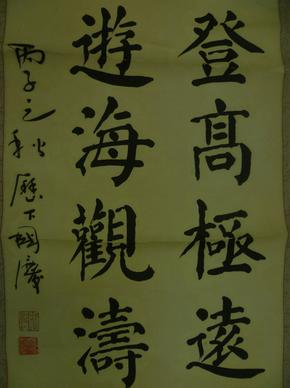 登高極遠
遊海觀濤
丙子之秋 歷下國廣